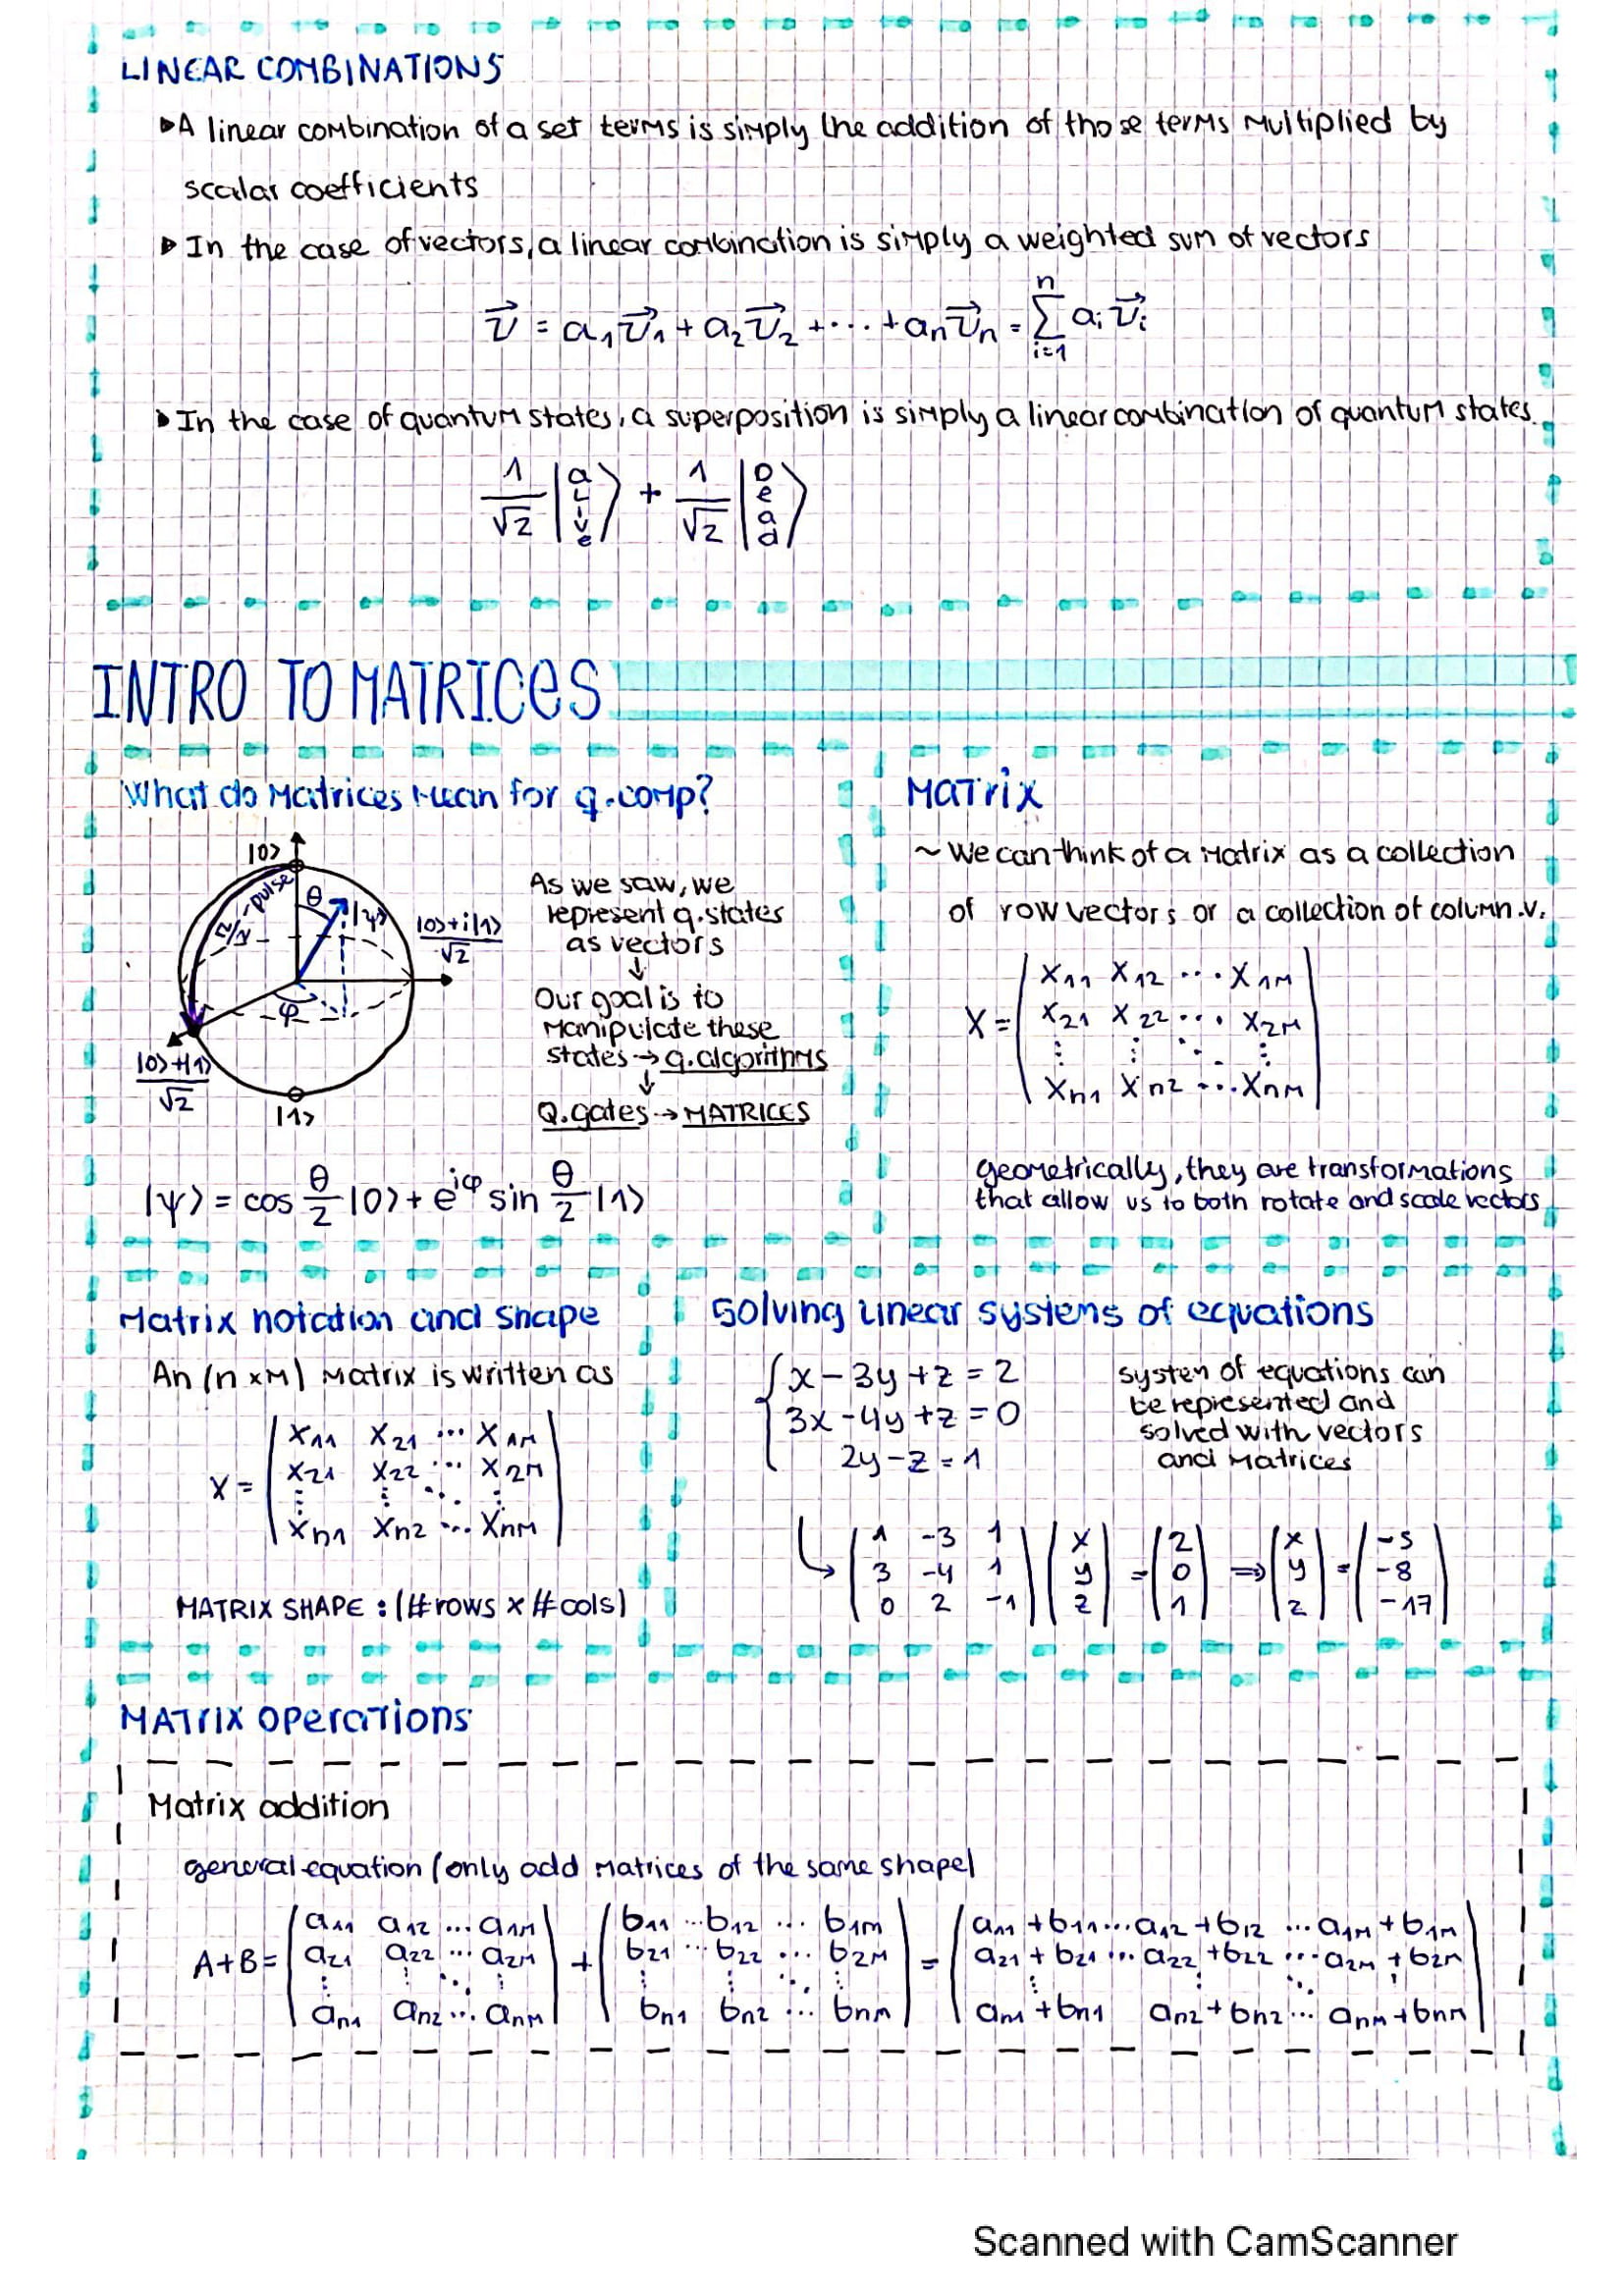 LINEAR COMBINATIONS
▸A linear combination of a set terms is simply the addition of those terms multiplied by
scalar coefficients
▸In the case of vectors, a linear combination is simply a weighted sum of vectors
v⃗ = a₁v⃗₁ + a₂v⃗₂ + ··· + aₙv⃗ₙ = ∑ⁿᵢ₌₁ aᵢv⃗ᵢ
▸In the case of quantum states, a superposition is simply a linear combination of quantum states.
1/√2 |aLive⟩ + 1/√2 |Dead⟩
INTRO TO MATRICES
What do Matrices Mean for q.comp?
|0⟩
π/2-pulse
θ
|ψ⟩
|0⟩+i|1⟩/√2
φ
|0⟩+|1⟩/√2
|1⟩
As we saw, we
represent q.states
as vectors
↓
Our goal is to
manipulate these
states → q.algorithms
↓
Q.gates → MATRICES
|ψ⟩ = cos θ/2 |0⟩ + e^iφ sin θ/2 |1⟩
Matrix
~ We can think of a matrix as a collection
of row vectors or a collection of column.v.
X = ( x₁₁ x₁₂ ··· x₁ₘ
x₂₁ x₂₂ ··· x₂ₘ
⋮ ⋮ ⋱ ⋮
xₙ₁ xₙ₂ ··· xₙₘ )
geometrically, they are transformations
that allow us to both rotate and scale vectors
Matrix notation and shape
An (n×m) matrix is written as
X = ( x₁₁ x₂₁ ··· x₁ₘ
x₂₁ x₂₂ ··· x₂ₘ
⋮ ⋮ ⋱ ⋮
xₙ₁ xₙ₂ ··· xₙₘ )
MATRIX SHAPE : (#rows × #cols)
Solving linear systems of equations
x − 3y + z = 2
3x − 4y + z = 0
2y − z = 1
system of equations can
be represented and
solved with vectors
and matrices
↳ ( 1 -3 1 ) ( x ) = ( 2 ) ⟹ ( x ) = ( -5 )
( 3 -4 1 ) ( y ) ( 0 ) ( y ) ( -8 )
( 0 2 -1 ) ( z ) ( 1 ) ( z ) ( -17 )
Matrix Operations
Matrix addition
general equation (only add matrices of the same shape)
A+B = ( a₁₁ a₁₂ ... a₁ₘ ) + ( b₁₁ ··· b₁₂ ... b₁ₘ ) = ( a₁₁+b₁₁ ... a₁₂+b₁₂ ... a₁ₘ+b₁ₘ )
( a₂₁ a₂₂ ... a₂ₘ ) ( b₂₁ ··· b₂₂ ... b₂ₘ ) ( a₂₁+b₂₁ ... a₂₂+b₂₂ ... a₂ₘ+b₂ₘ )
( ⋮ ⋮ ⋱ ⋮ ) ( ⋮ ⋮ ⋱ ⋮ ) ( ⋮ ⋮ ⋱ ⋮ )
( aₙ₁ aₙ₂ ... aₙₘ ) ( bₙ₁ bₙ₂ ... bₙₘ ) ( aₙ₁+bₙ₁ aₙ₂+bₙ₂ ... aₙₘ+bₙₘ )
Scanned with CamScanner